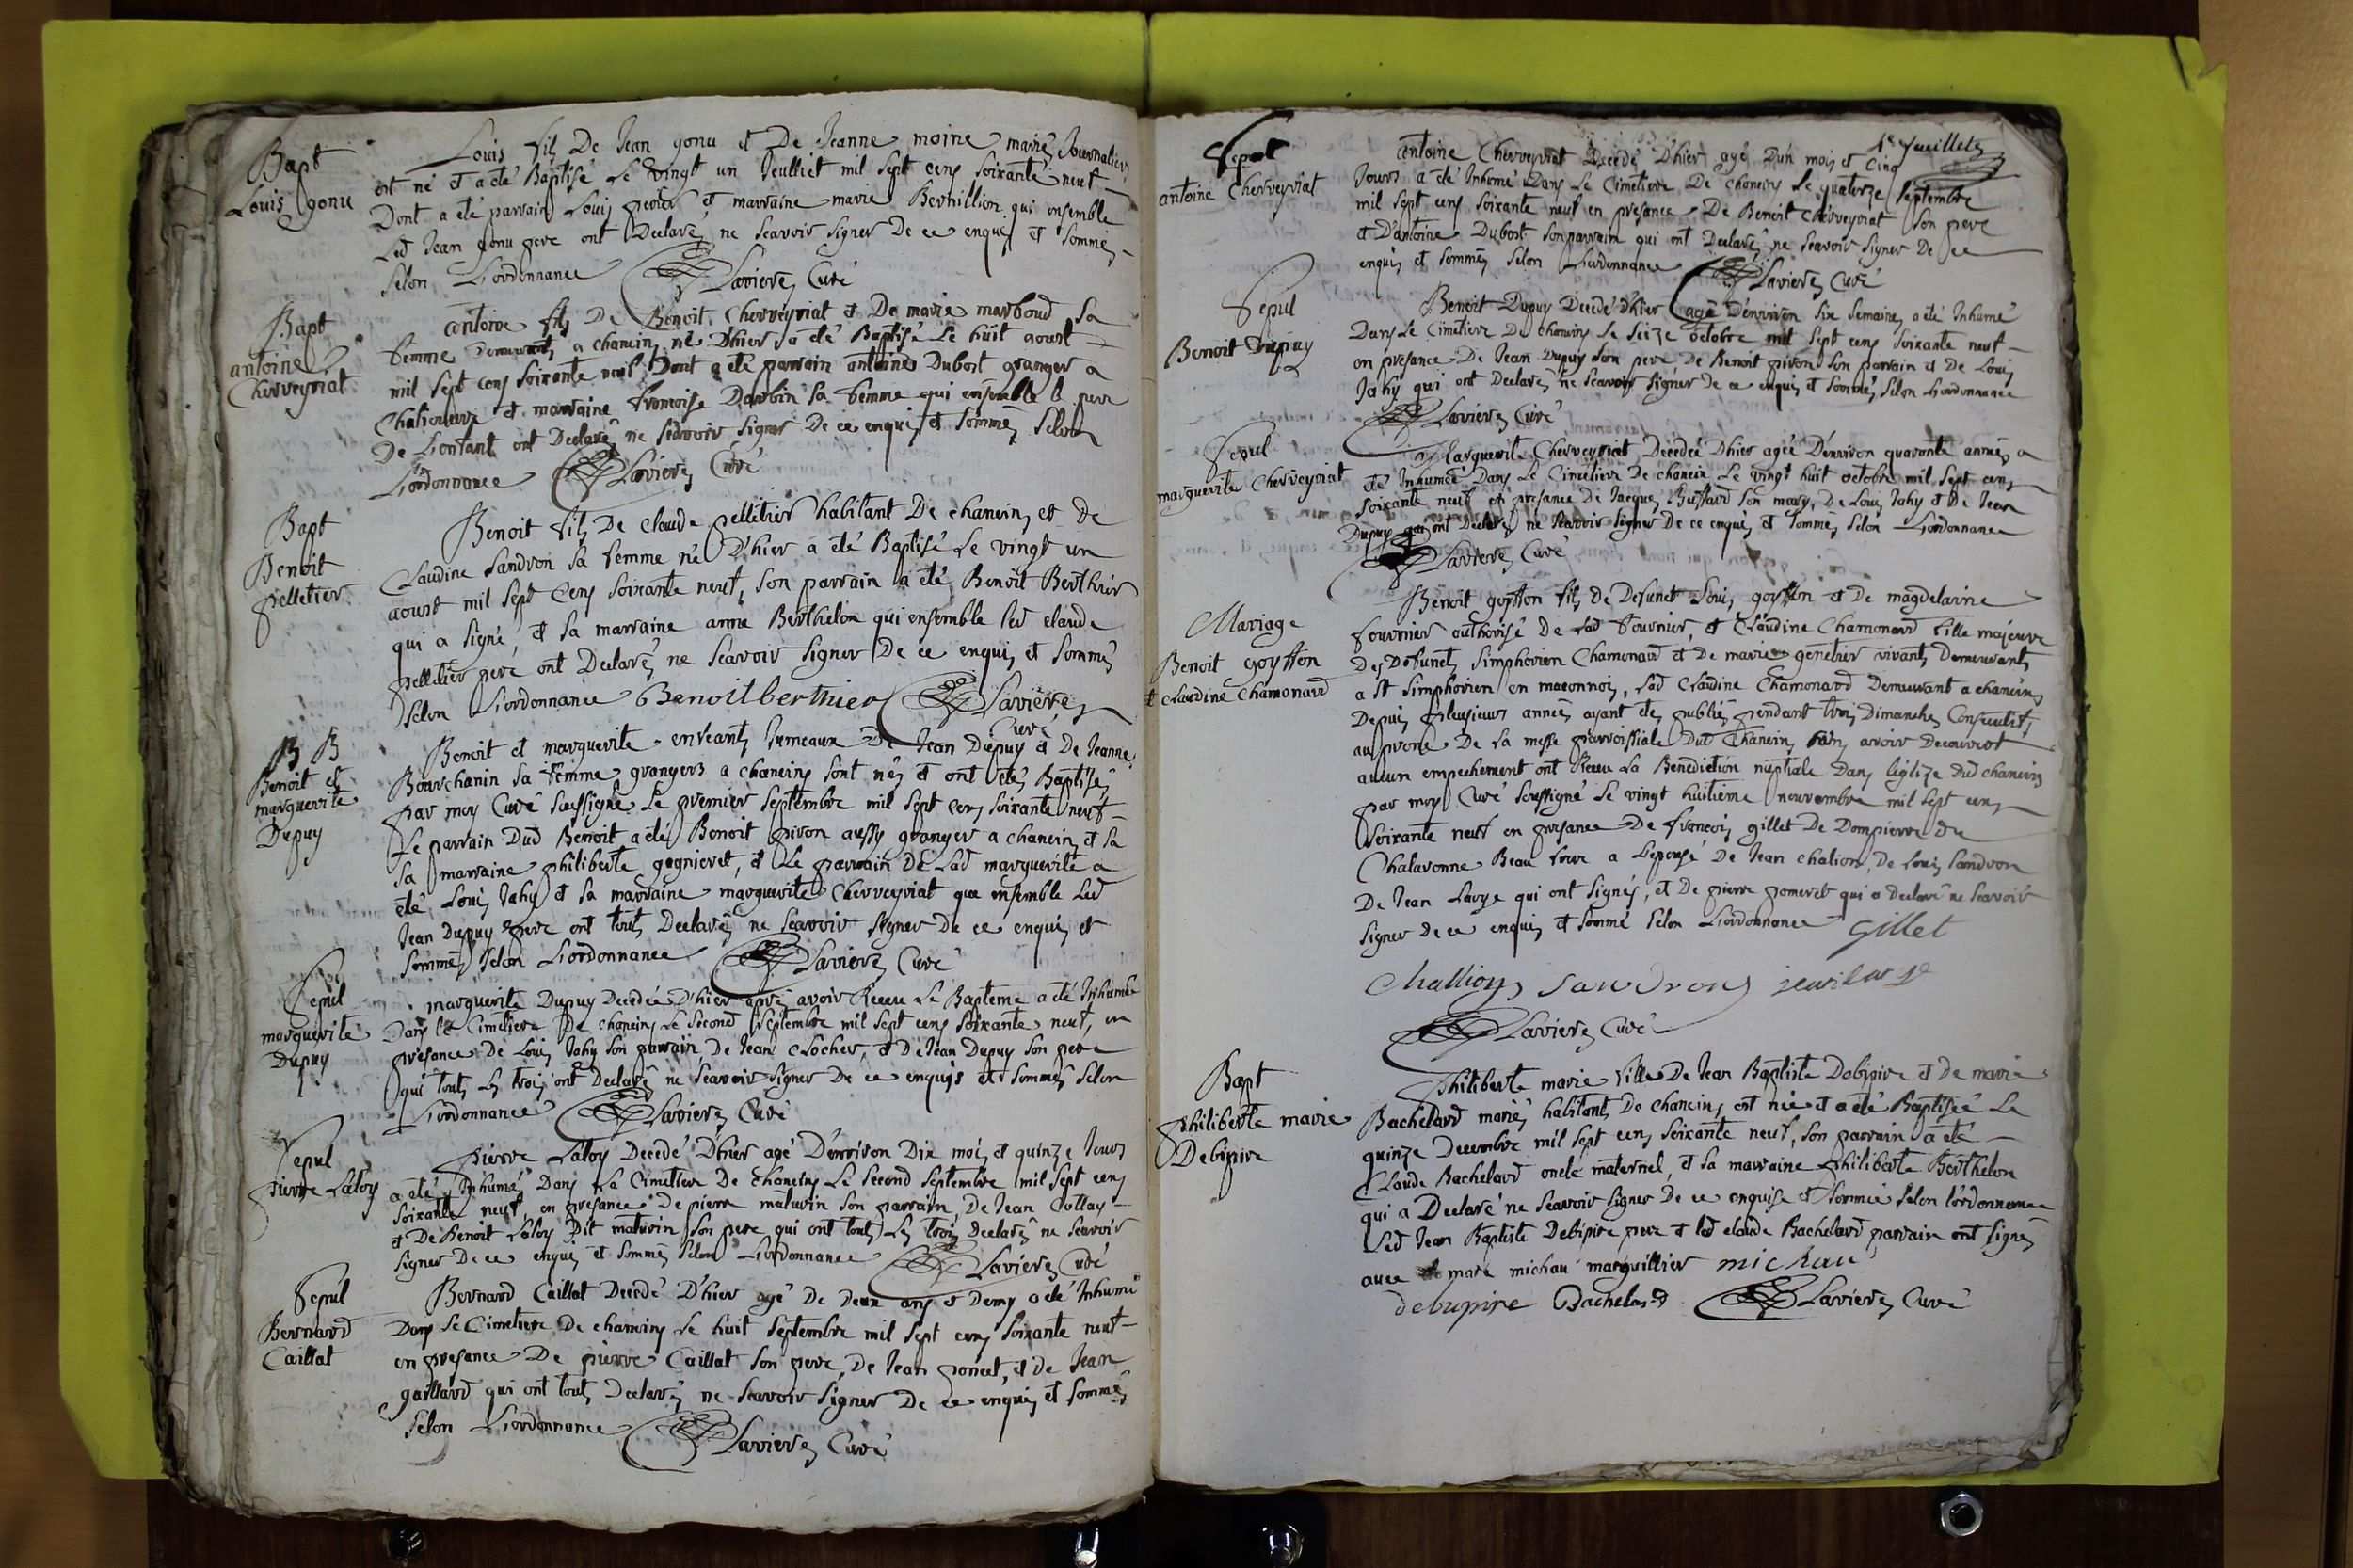 Bapt
Louis gonu
Louis fils De Jean gonu et De Jeanne moine mariés Journaliers
est né et a été Baptisé Le vingt un Jeulliet mil sept cens soixante neuf
Dont a été parrain Louis et marraine marie Bernillion qui ensemble
Led Jean gonu pere ont Declarés ne scavoir signer De ce enquis et sommés
selon Lordonnance Lavieres Curé
Bapt
antoine
Cherveyriat
antoine fils De Benoit Cherveyriat et De marie marboud sa
femme Demeurants a chanein né D'hier a été Baptisé Le huit aoust
mil sept cens soixante neuf Dont a été parrain antoine Dubost granger a
et marraine francoise Darbin sa femme qui ensemble le pere
De L'enfant ont Declarés ne scavoir signer De ce enquis et sommés selon
Lordonnance Lavieres Curé
Bapt
Benoit
pelletier
Benoit fils De claude pelletier habitant De chaneins et de
Claudine sandron sa femme né D'hier a été Baptisé Le vingt un
aoust mil sept Cens soixante neuf, son parrain a été Benoit Berthier
qui a signé, et sa marraine anne Berthelon qui ensemble led claude
pelletier pere ont Declarés ne scavoir signer De ce enquis et sommés
selon Lordonnance Benoitberthier Lavieres
Curé
B B
Benoit et
marguerite
Dupuy
Benoit et marguerite enfeants Jumeaux De Jean Dupuy et De Jeanne
Bourchanin sa femme grangers a chaneins sont nés et ont étés Baptisés
par moy Curé soussigné Le premier septembre mil sept cens soixante neuf
Le parrain Dud Benoit a été Benoit pivon aussy granger a chanein et sa
sa marraine philiberte gagnievet, et Le parrain De Lad marguerite a
été Louis Jahy et sa marraine marguerite Cherveyriat que ensemble Led
Jean Dupuy pere ont touts Declarés ne scavoir signer De ce enquis et
sommés selon Lordonnance Lavieres Curé
Sepul
marguerite
Dupuy
marguerite Dupuy Decedée D'hier aprés avoir Receu Le Bapteme a été Inhumée
Dans Le Cimetiere De chaneins Le second septembre mil sept cens soixante neuf, en
presance De Louis Jahy son parrain, De Jean Clocher, et De Jean Dupuy son pere
qui touts Les trois ont Declarés ne scavoir signer De ce enquis et sommés selon
Lordonnance Lavieres Curé
Sepul
pierre Laloy
pierre Laloy Decedé D'hier agé D'environ Dix mois et quinze Jours
a été Inhumé Dans Le Cimetiere De Chaneins Le second septembre mil sept cens
soixante neuf, en presance De pierre maturin son parrain, De Jean Collay
et De Benoit Laloy Dit maturin son pere qui ont touts Les trois Declarés ne scavoir
signer De ce enquis et sommés selon Lordonnance Lavieres Curé
Sepul
Bernard
Caillat
Bernard Caillat Decedé D'hier agé De Deux ans et Demy a été Inhumé
Dans Le Cimetiere De chaneins Le huit septembre mil sept cens soixante neuf
en presance De pierre Caillat son pere, De Jean poncet, et de Jean
gaillard qui ont touts declarés ne scavoir signer De ce enquis et sommés
selon Lordonnance Lavieres Curé
1e feuillet
Sepul
antoine Cherveyriat
antoine Cherveyriat Decedé D'hier agé D'un mois et Cinq
Jours a été Inhumé Dans Le Cimetiere De chaneins Le quatorze septembre
mil sept cens soixante neuf en presance De Benoit Cherveyriat son pere
et D'antoine Dubost son parrain qui ont Declarés ne scavoir signer De ce
enquis et sommés selon Lordonnance Lavieres Curé
Sepul
Benoit Dupuy
Benoit Dupuy Decedé D'hier agé D'environ six semaines a été Inhumé
Dans Le Cimetiere De chaneins Le seize octobre mil sept cens soixante neuf
en presance De Jean Dupuy son pere De Benoit pivon son parrain et De Louis
Jahy qui ont Declarés ne scavoir signer de ce enquis et sommés selon Lordonnance
Lavieres Curé
Sepul
marguerite Cherveyriat
Marguerite Cherveyriat Decedée D'hier agée D'environ quarante années a
été Inhumée Dans Le Cimetiere De chanein Le vingt huit octobre mil sept cens
soixante neuf en presance De Jacques Bussard son mary, De Louis Jahy et De Jean
Dupuy qui ont Declarés ne scavoir signer De ce enquis et sommés selon Lordonnance
Lavieres Curé
Mariage
Benoit goyffon
et claudine chamonard
Benoit goyffon fils de Defunct Louis goyffon et De magdelaine
fournier authorisé De Lad fournier, et Claudine Chamonard fille majeure
Des Defuncts simphorien Chamonard et De marie genetier vivants Demeurants
a st simphorien en maconnois, Lad Claudine Chamonard Demeurant a chaneins
Depuis plusieurs années ayant étés publiés pendant trois Dimanches Consecutifs
au prone De la messe parroissiale Dud Chaneins sans avoir Decouvert
aucun empechement ont Receu La Benediction nuptiale Dans l'eglize dud chaneins
par moy Curé soussigné Le vingt huitieme nouvembre mil sept cens
soixante neuf en presance De francois gillet De Dompierre De
Chalaronne Beau frere a L'epousé De Jean chalion, De Louis sandron
De Jean Lavye qui ont signés, et De pierre pomeret qui a declaré ne scavoir
signer De ce enquis et sommé selon Lordonnance Gillet
Challion sandron
Lavieres Curé
Bapt
philiberte marie
Debipire
Philiberte marie fille De Jean Baptiste Debipire et de marie
Bachelard mariés habitants De chaneins est née et a été Baptisée Le
quinze Decembre mil sept cens soixante neuf, son parrain a été
Claude Bachelard oncle maternel, et sa marraine philiberte Berthelon
qui a Declaré ne scavoir signer De ce enquise et sommée selon l'ordonnance
Led Jean Baptiste Debipire pere et led claude Bachelard parrain ont signés
avec marc michau marguillier michau
debupire Bachelard Lavieres Curé